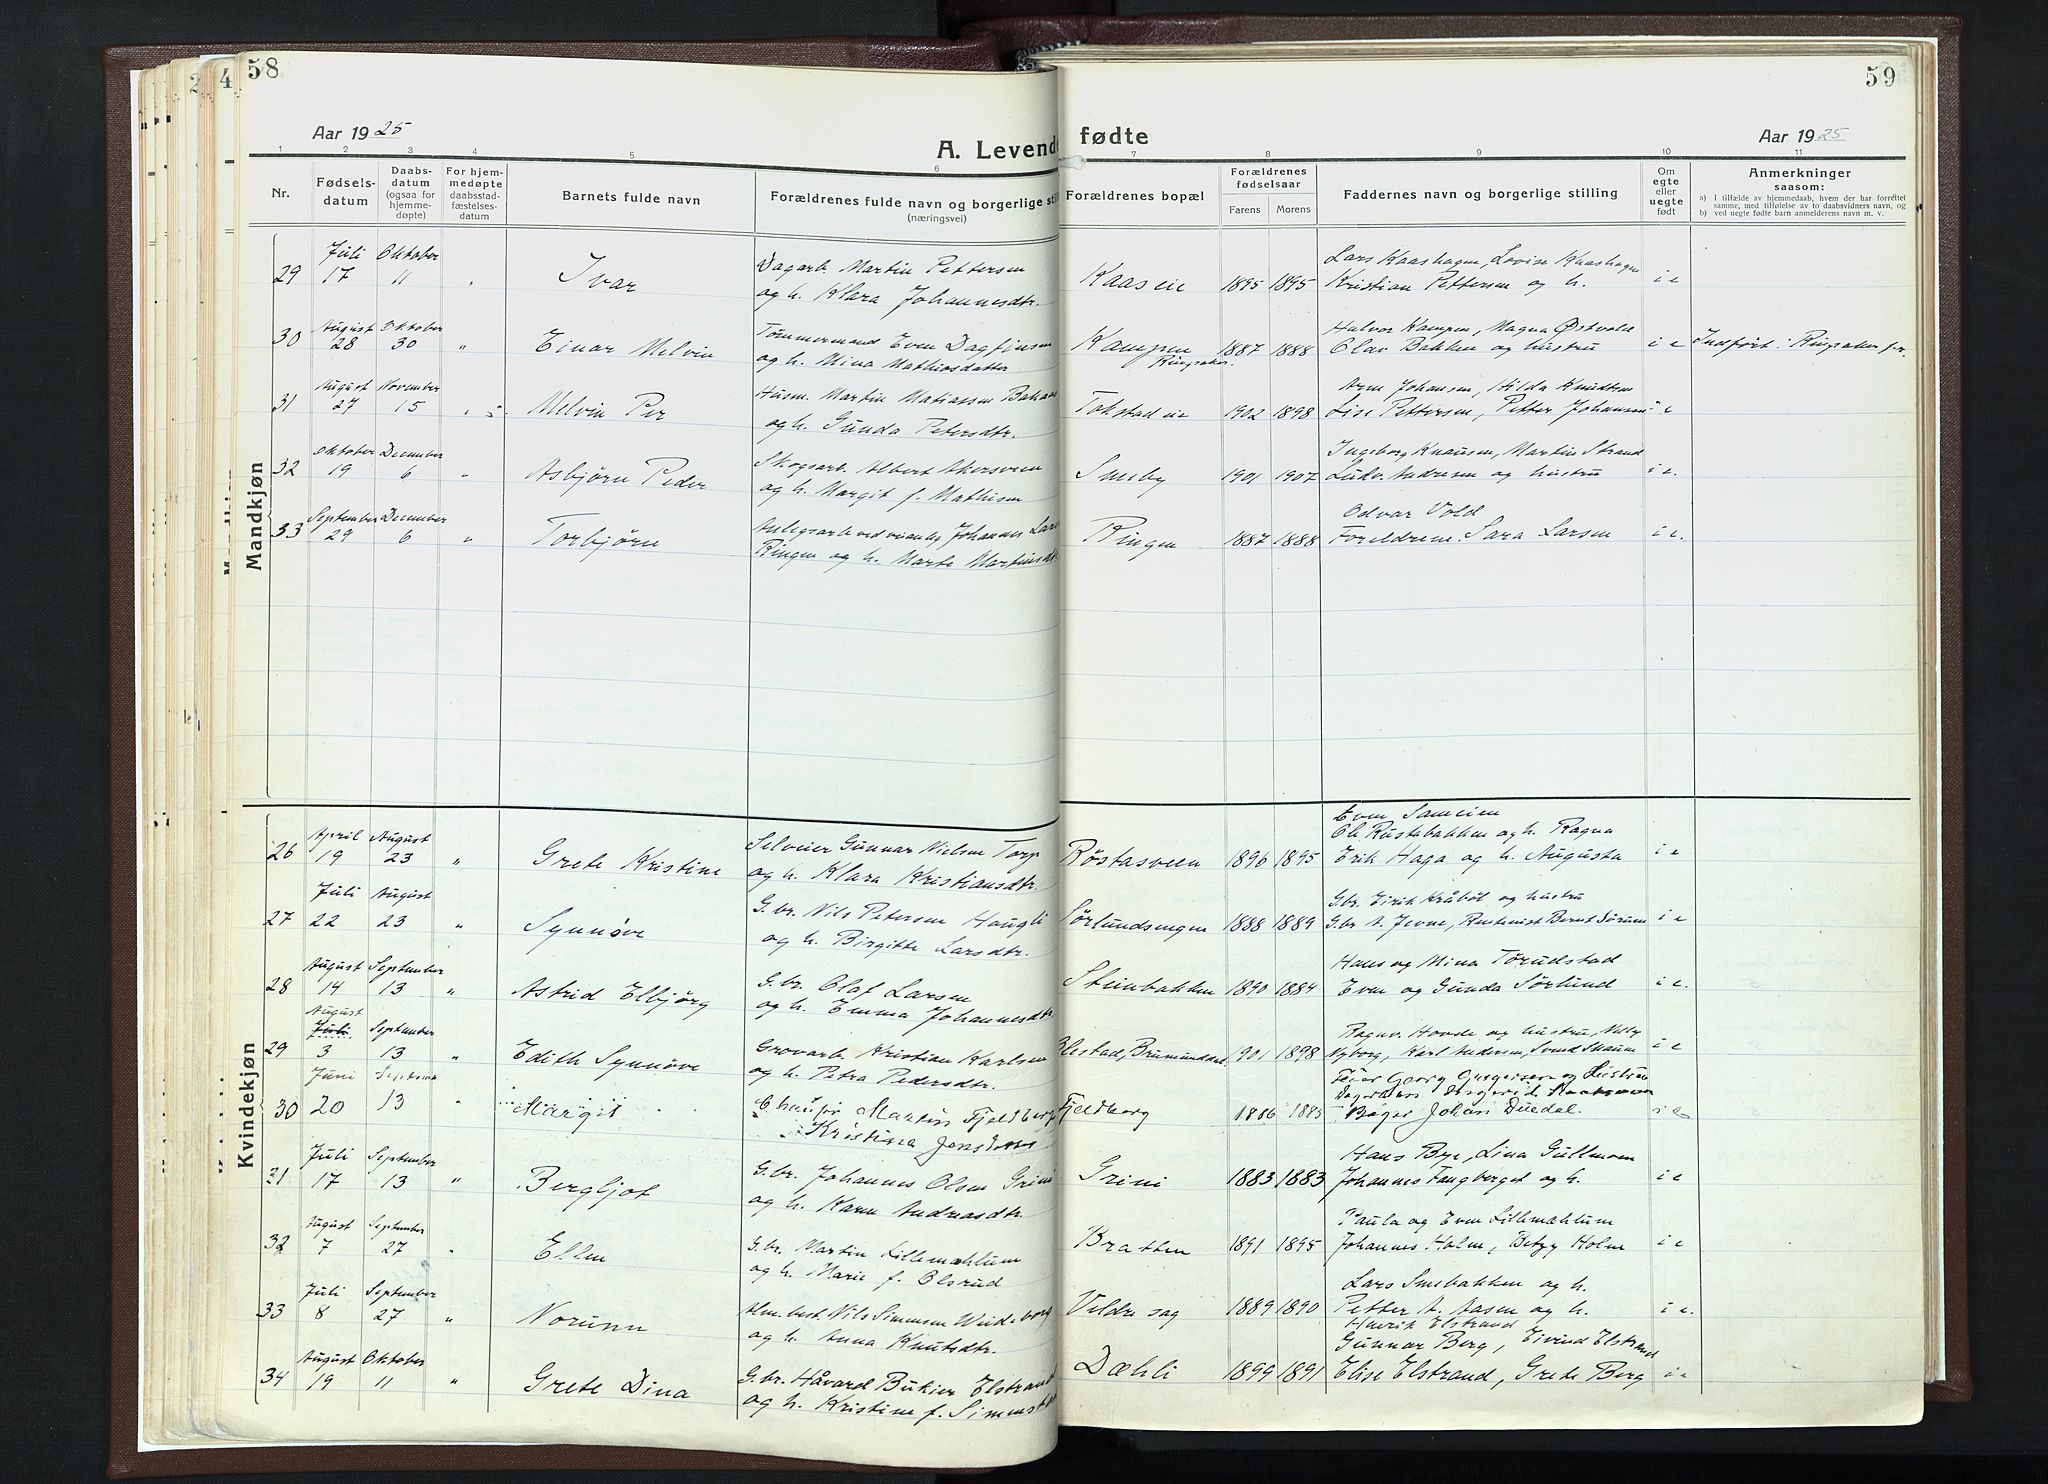 58
Aar 1925
A. Levende
1 2 3 4 5 6
Nr.
Fødselsdatum
Daabsdatum (ogsaa for hjemmedøpte)
For hjemmedøpte daabsstadfæstelsesdatum
Barnets fulde navn
Forældrenes fulde navn og borgerlige still
(næringsvei)
59
fødte
Aar 1925
7 8 9 10 11
Forældrenes bopæl
Forældrenes fødselsaar
Farens
Morens
Faddernes navn og borgerlige stilling
Om egte eller uegte født
Anmerkninger
saasom:
a) I tilfælde av hjemmedaab, hvem der har forrettet samme, med tilføielse av to daabsvidners navn, og
b) ved uegte fødte barn anmelderens navn m. v.
Mandkjøn
29 Juli 17 Oktober 11 " Ivar
Dagarb. Martin Pettersen
og h. Klara Johannesdtr.
Kaaseie 1895 1895
Lars Kaashagen, Lovise Kaashagen
Kristian Pettersen og h. i e
30 August 28 Oktober 30 " Einar Melvin
Tømmermand Even Dagfinsen
og h. Mina Mathiasdatter
Kampen Ringsaker. 1887 1888
Halvor Kampen, Magna Østvold
Olav Bakken og hustru i e
Indført i Ringsaker
31 August 27 November 15 " Melvin Per
Husm. Martin Matiassen
og h. Gunda Petersdtr.
Tokstadeie 1902 1898
Arne Johansen, Hilda Knudsen
Lise Pettersen, Petter Johansen i e
32 Oktober 19 December 6 " Asbjørn Peder
Skogsarb. Albert Akersveen
og h. Margit f. Mathisen
Smeby 1901 1907
Ingeborg Knausen, Martin Strand
Ludv. Andresen og hustru i e.
33 September 29 December 6 " Torbjørn
Anlegsarb. ved Johannes Lars
Ringen og h. Marte Martinsdt
Ringen 1887 1888
Odvar Vold
Foreldrene. Sara Larsen i e.
Kvindekjøn
26 April 19 August 23 " Grete Kristine
Selveier Gunnar Nielsen Torp
og h. Klara Kristiansdtr.
Røstasveen 1896 1895
Even Sameien
Ole Rustebakken og h. Ragna
Erik Haga og h. Augusta i e
27 Juli 22 August 23 " Synnøve
G.br. Nils Petersen Haugli
og h. Birgitte Larsdtr.
Sørlundsengen 1888 1889
G.br. Eirik Kråbøl og hustru
G.br A. Jevne, Bernt Sørum i e
28 August 14 September 13 " Astrid Elbjørg
G.br. Olaf Larsen
og h. Emma Johannesdtr.
Steinbakken 1890 1884
Hans og Mina Tørudstad
Even og Gunda Sørlund i e.
29 August 3 September 13 " Edith Synnøve
Grovarb. Kristian Karlsen
og h. Petra Pedersdtr.
Brumunddal 1901 1898
Ragnv. Hovde og hustru, Nelly
Nyborg, Karl Andersen, Svend Skaum i e
30 Juni 20 Septemr 13 " Margit
Chauffør Martin Fjeldberg
Kristiana
Fjeldberg 1886 1883
Georg og hustru
Johan i e
31 Juli 17 September 13 " Bergljot
G.br. Johannes Olsen Grini
og h. Karen Andreasdtr.
Grini 1883 1883
Hans Bye, Lina Gullmoen
Johannes Fangberget og h. i e
32 August 7 September 27 " Ellen
G.br. Martin Lillemæhlum
og h. Marie f. Olsrud
Bratten 1891 1895
Paula og Even Lillemæhlum
Johannes Holm, Betzy Holm i e
33 Juli 8 September 27 " Norunn
Alm.best. Nils Simensen
og h. Anna Knutsdtr.
Veldre sag 1889 1890
Lars Smebakken og h.
Petter A. Aasen og h. i e.
34 August 19 Oktober 11 " Grete Dina
G.br. Håvard Bukier Elstrand
og h. Kristine f. Simens
Dæhli 1899 1891
Henrik Elstrand
Gunnar Berg, Eivind Elstrand
Elise Elstrand, Grete Berg i e